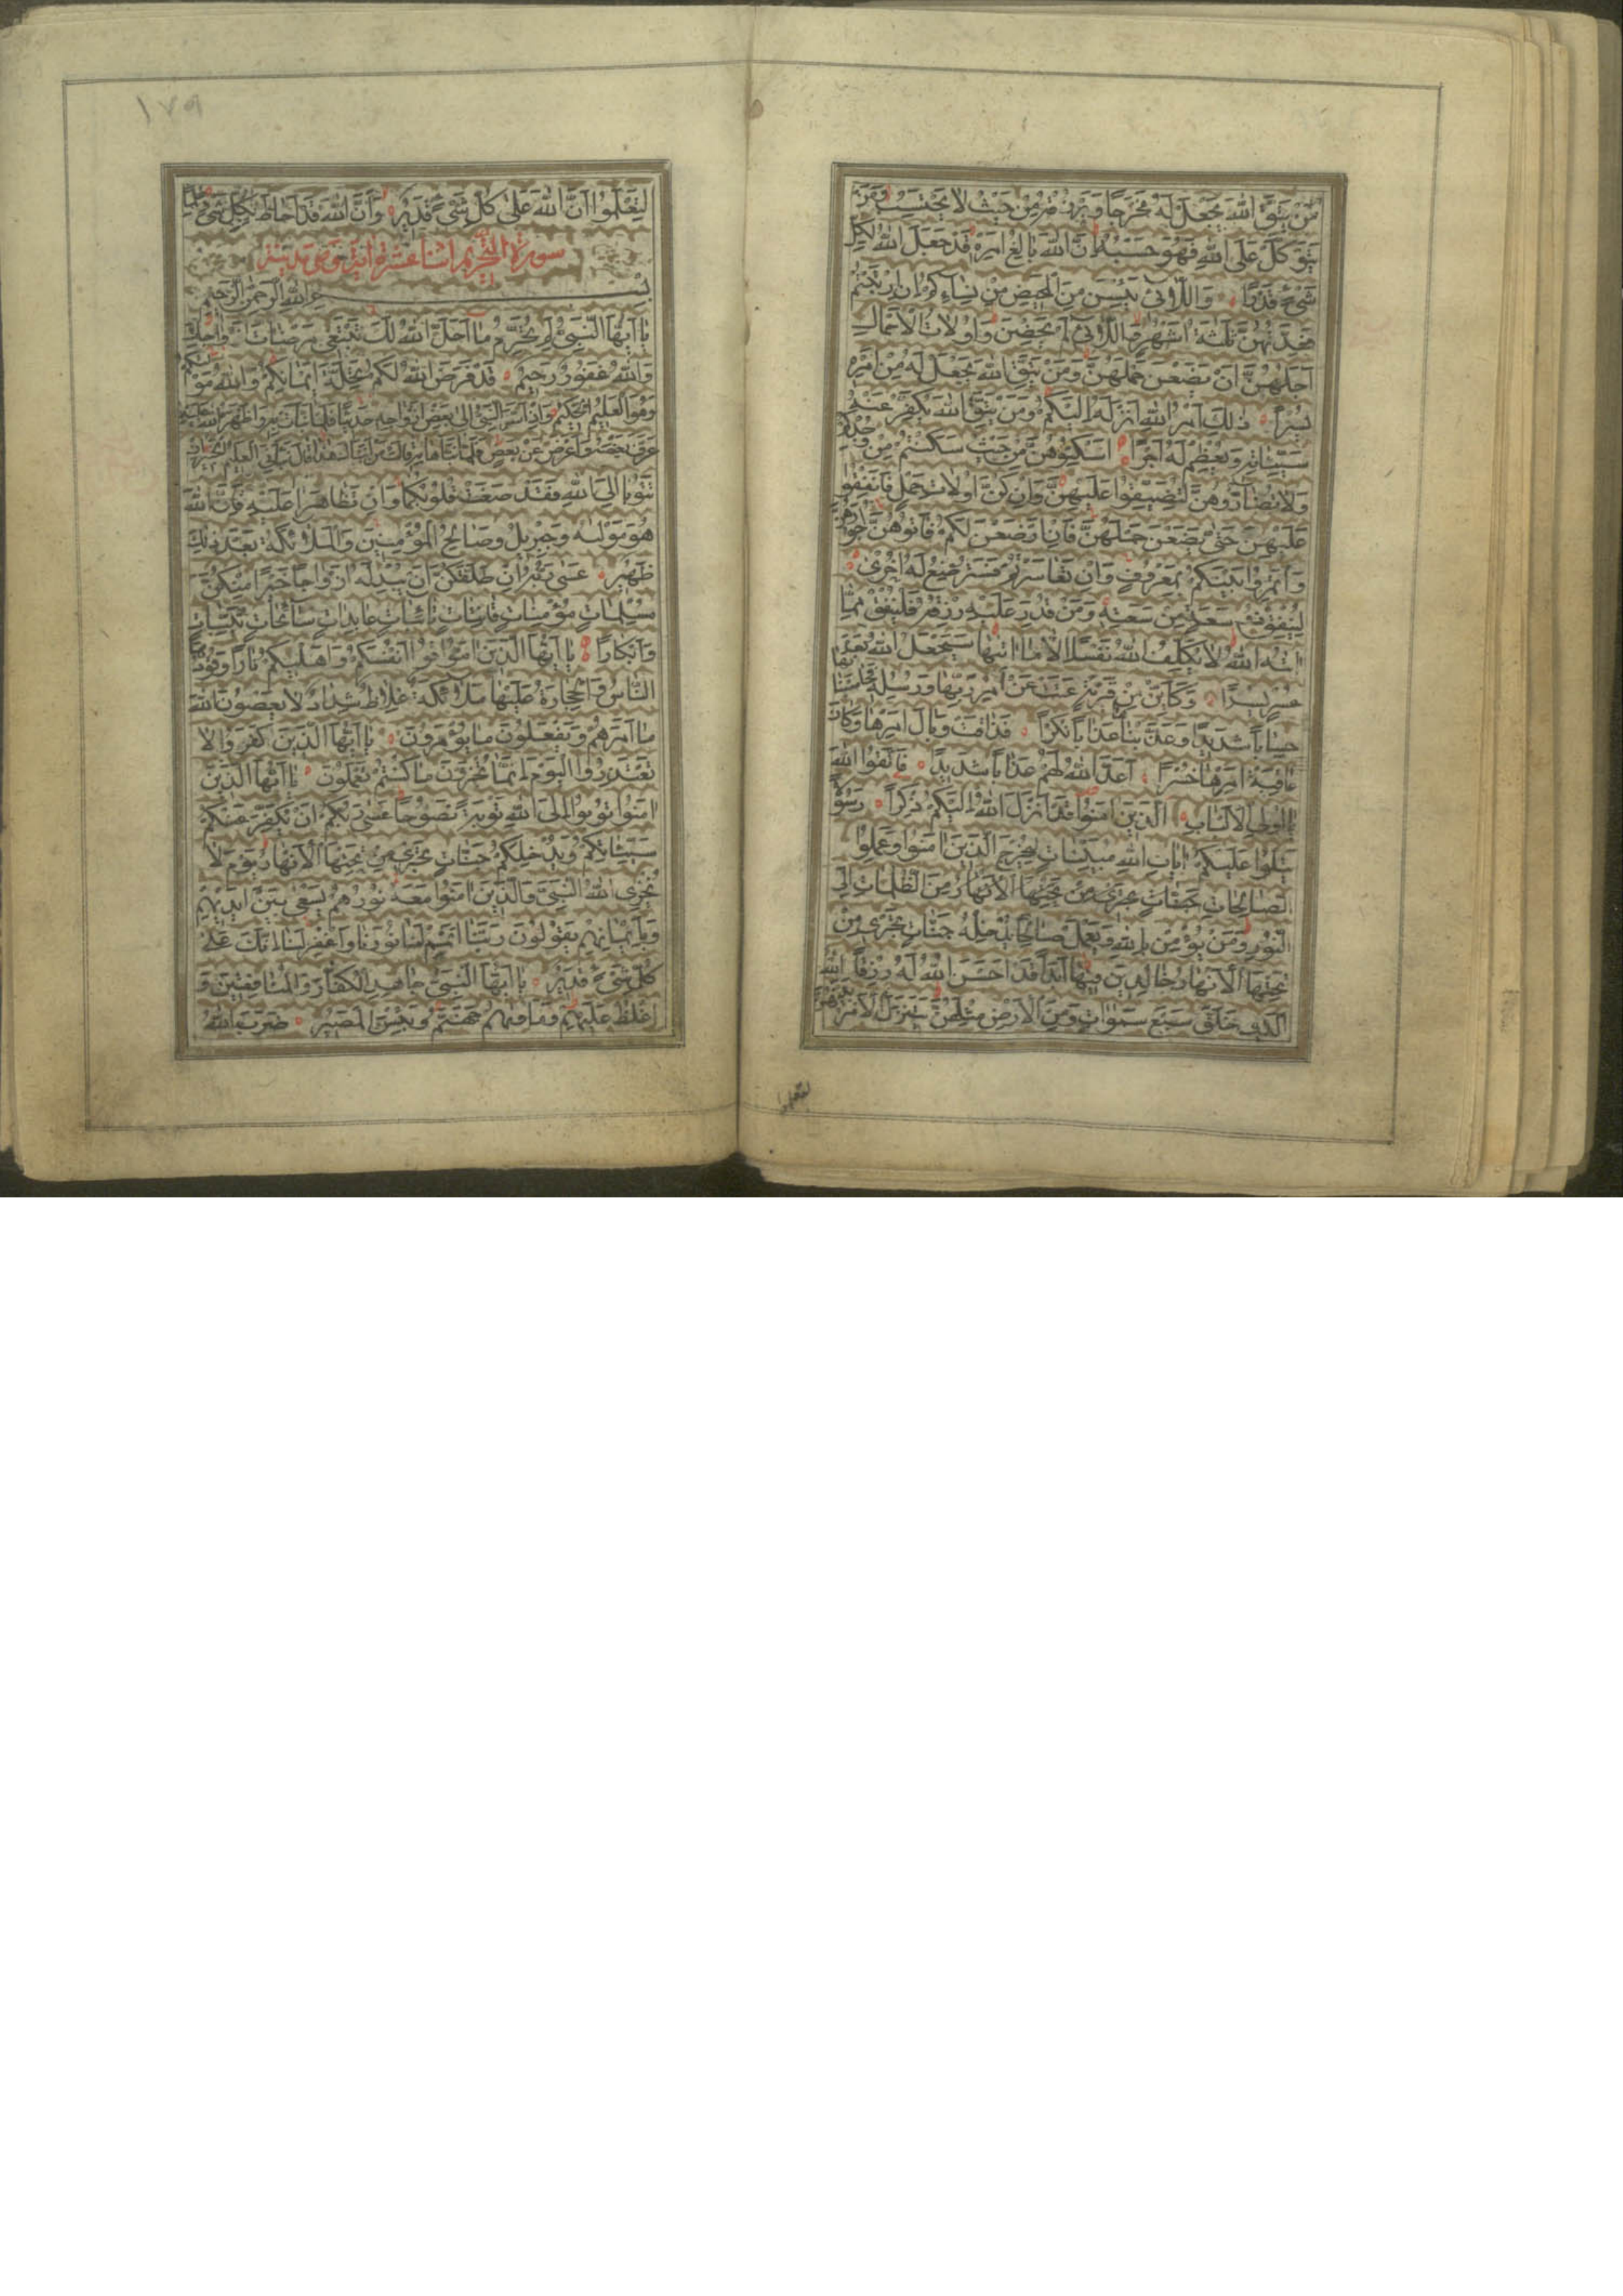 مَنْ يَتَّقِ اللهَ يَجْعَلْ لَهُ مَخْرَجًا وَيَرْزُقْهُ مِنْ حَيْثُ لَا يَحْتَسِبُ وَمَنْ
يَتَوَكَّلْ عَلَى اللهِ فَهُوَ حَسْبُهُ اِنَّ اللهَ بَالِغُ اَمْرِهِ قَدْ جَعَلَ اللهُ لِكُلِّ
شَيْءٍ قَدْرًا وَاللَّائِي يَئِسْنَ مِنَ الْمَحِيضِ مِنْ نِسَائِكُمْ اِنِ ارْتَبْتُمْ
فَعِدَّتُهُنَّ ثَلٰثَةُ اَشْهُرٍ وَاللَّائِي لَمْ يَحِضْنَ وَاُولَاتُ الْاَحْمَالِ
اَجَلُهُنَّ اَنْ يَضَعْنَ حَمْلَهُنَّ وَمَنْ يَتَّقِ اللهَ يَجْعَلْ لَهُ مِنْ اَمْرِهِ
يُسْرًا ذٰلِكَ اَمْرُ اللهِ اَنْزَلَهُ اِلَيْكُمْ وَمَنْ يَتَّقِ اللهَ يُكَفِّرْ عَنْهُ
سَيِّئَاتِهِ وَيُعْظِمْ لَهُ اَجْرًا اَسْكِنُوهُنَّ مِنْ حَيْثُ سَكَنْتُمْ مِنْ وُجْدِكُمْ
وَلَا تُضَارُّوهُنَّ لِتُضَيِّقُوا عَلَيْهِنَّ وَاِنْ كُنَّ اُولَاتِ حَمْلٍ فَاَنْفِقُوا
عَلَيْهِنَّ حَتّٰى يَضَعْنَ حَمْلَهُنَّ فَاِنْ اَرْضَعْنَ لَكُمْ فَاٰتُوهُنَّ اُجُورَهُنَّ
وَاْتَمِرُوا بَيْنَكُمْ بِمَعْرُوفٍ وَاِنْ تَعَاسَرْتُمْ فَسَتُرْضِعُ لَهُ اُخْرٰى
لِيُنْفِقْ ذُو سَعَةٍ مِنْ سَعَتِهِ وَمَنْ قُدِرَ عَلَيْهِ رِزْقُهُ فَلْيُنْفِقْ مِمَّا
اٰتٰهُ اللهُ لَا يُكَلِّفُ اللهُ نَفْسًا اِلَّا مَا اٰتٰيهَا سَيَجْعَلُ اللهُ بَعْدَ
عُسْرٍ يُسْرًا وَكَاَيِّنْ مِنْ قَرْيَةٍ عَتَتْ عَنْ اَمْرِ رَبِّهَا وَرُسُلِهِ فَحَاسَبْنَاهَا
حِسَابًا شَدِيدًا وَعَذَّبْنَاهَا عَذَابًا نُكْرًا فَذَاقَتْ وَبَالَ اَمْرِهَا وَكَانَ
عَاقِبَةُ اَمْرِهَا خُسْرًا اَعَدَّ اللهُ لَهُمْ عَذَابًا شَدِيدًا فَاتَّقُوا اللهَ
يَا اُولِي الْاَلْبَابِ الَّذِينَ اٰمَنُوا قَدْ اَنْزَلَ اللهُ اِلَيْكُمْ ذِكْرًا رَسُولًا
يَتْلُوا عَلَيْكُمْ اٰيَاتِ اللهِ مُبَيِّنَاتٍ لِيُخْرِجَ الَّذِينَ اٰمَنُوا وَعَمِلُوا
الصَّالِحَاتِ جَنَّاتٍ تَجْرِي مِنْ تَحْتِهَا الْاَنْهَارُ مِنَ الظُّلُمَاتِ اِلَى
النُّورِ وَمَنْ يُؤْمِنْ بِاللهِ وَيَعْمَلْ صَالِحًا يُدْخِلْهُ جَنَّاتٍ تَجْرِي مِنْ
تَحْتِهَا الْاَنْهَارُ خَالِدِينَ فِيهَا اَبَدًا قَدْ اَحْسَنَ اللهُ لَهُ رِزْقًا اَللهُ
الَّذِي خَلَقَ سَبْعَ سَمٰوَاتٍ وَمِنَ الْاَرْضِ مِثْلَهُنَّ يَتَنَزَّلُ الْاَمْرُ بَيْنَهُنَّ
لتعلموا
١٧٩
لِتَعْلَمُوا اَنَّ اللهَ عَلٰى كُلِّ شَيْءٍ قَدِيرٌ وَاَنَّ اللهَ قَدْ اَحَاطَ بِكُلِّ شَيْءٍ عِلْمًا
سورة التحريم اثنا عشرة اية وهي مدنية
بِسْمِ اللهِ الرَّحْمٰنِ الرَّحِيمِ
يَا اَيُّهَا النَّبِيُّ لِمَ تُحَرِّمُ مَا اَحَلَّ اللهُ لَكَ تَبْتَغِي مَرْضَاتَ اَزْوَاجِكَ
وَاللهُ غَفُورٌ رَحِيمٌ قَدْ فَرَضَ اللهُ لَكُمْ تَحِلَّةَ اَيْمَانِكُمْ وَاللهُ مَوْلٰيكُمْ
وَهُوَ الْعَلِيمُ الْحَكِيمُ وَاِذْ اَسَرَّ النَّبِيُّ اِلٰى بَعْضِ اَزْوَاجِهِ حَدِيثًا فَلَمَّا نَبَّاَتْ بِهِ وَاَظْهَرَهُ اللهُ عَلَيْهِ
عَرَّفَ بَعْضَهُ وَاَعْرَضَ عَنْ بَعْضٍ فَلَمَّا نَبَّاَهَا بِهِ قَالَتْ مَنْ اَنْبَاَكَ هٰذَا قَالَ نَبَّاَنِيَ الْعَلِيمُ الْخَبِيرُ اِنْ
تَتُوبَا اِلَى اللهِ فَقَدْ صَغَتْ قُلُوبُكُمَا وَاِنْ تَظَاهَرَا عَلَيْهِ فَاِنَّ اللهَ
هُوَ مَوْلٰيهُ وَجِبْرِيلُ وَصَالِحُ الْمُؤْمِنِينَ وَالْمَلَائِكَةُ بَعْدَ ذٰلِكَ
ظَهِيرٌ عَسٰى رَبُّهُ اِنْ طَلَّقَكُنَّ اَنْ يُبْدِلَهُ اَزْوَاجًا خَيْرًا مِنْكُنَّ
مُسْلِمَاتٍ مُؤْمِنَاتٍ قَانِتَاتٍ تَائِبَاتٍ عَابِدَاتٍ سَائِحَاتٍ ثَيِّبَاتٍ
وَاَبْكَارًا يَا اَيُّهَا الَّذِينَ اٰمَنُوا قُوا اَنْفُسَكُمْ وَاَهْلِيكُمْ نَارًا وَقُودُهَا
النَّاسُ وَالْحِجَارَةُ عَلَيْهَا مَلَائِكَةٌ غِلَاظٌ شِدَادٌ لَا يَعْصُونَ اللهَ
مَا اَمَرَهُمْ وَيَفْعَلُونَ مَا يُؤْمَرُونَ يَا اَيُّهَا الَّذِينَ كَفَرُوا لَا
تَعْتَذِرُوا الْيَوْمَ اِنَّمَا تُجْزَوْنَ مَا كُنْتُمْ تَعْمَلُونَ يَا اَيُّهَا الَّذِينَ
اٰمَنُوا تُوبُوا اِلَى اللهِ تَوْبَةً نَصُوحًا عَسٰى رَبُّكُمْ اَنْ يُكَفِّرَ عَنْكُمْ
سَيِّئَاتِكُمْ وَيُدْخِلَكُمْ جَنَّاتٍ تَجْرِي مِنْ تَحْتِهَا الْاَنْهَارُ يَوْمَ لَا
يُخْزِي اللهُ النَّبِيَّ وَالَّذِينَ اٰمَنُوا مَعَهُ نُورُهُمْ يَسْعٰى بَيْنَ اَيْدِيهِمْ
وَبِاَيْمَانِهِمْ يَقُولُونَ رَبَّنَا اَتْمِمْ لَنَا نُورَنَا وَاغْفِرْ لَنَا اِنَّكَ عَلٰى
كُلِّ شَيْءٍ قَدِيرٌ يَا اَيُّهَا النَّبِيُّ جَاهِدِ الْكُفَّارَ وَالْمُنَافِقِينَ وَ
اغْلُظْ عَلَيْهِمْ وَمَاْوٰيهُمْ جَهَنَّمُ وَبِئْسَ الْمَصِيرُ ضَرَبَ اللهُ